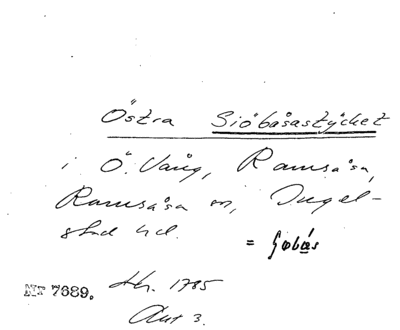 Östra Siöbåsastycket
i Ö. Vång, Ramsåsa,
Ramsåsa sn, Ingel-
stad hd.
=
Nr 7689. 1785
Akt 3.